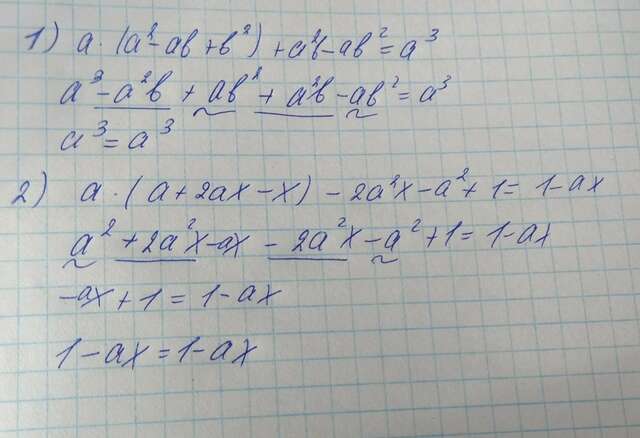 1) a · (a² - ab + b²) + a²b - ab² = a³
a³ - a²b + ab² + a²b - ab² = a³
a³ = a³
2) a · (a + 2ax - x) - 2a²x - a² + 1 = 1 - ax
a² + 2a²x - ax - 2a²x - a² + 1 = 1 - ax
-ax + 1 = 1 - ax
1 - ax = 1 - ax